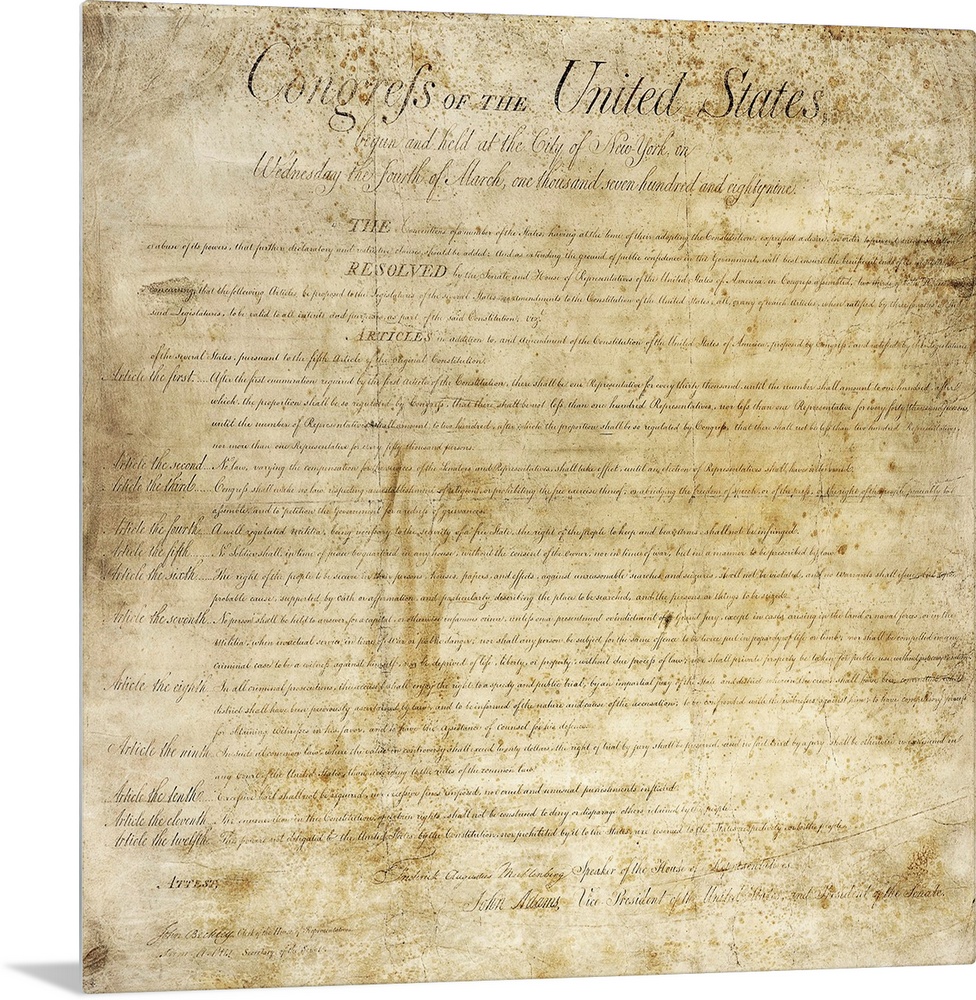 Congreſs OF THE United States,
begun and held at the City of New York, on
Wednesday the fourth of March, one thousand seven hundred and eightynine.
THE Conventions of a number of the States, having at the time of their adopting the Constitution, expressed a desire, in order to prevent
or abuse of its powers, that further declaratory and restrictive clauses should be added: And as extending the ground of public confidence in the Government, will best ensure the beneficent ends of
RESOLVED by the Senate and House of Representatives of the United States of America, in Congress assembled, two
concurring, that the following Articles be proposed to the Legislatures of the several States, as amendments to the Constitution of the United States, all, or any of which Articles, when ratified by three fourths of
said Legislatures, to be valid to all intents and purposes, as part of the said Constitution; viz.
ARTICLES in addition to, and Amendment of the Constitution of the United States of America, proposed by Congress, and ratified by the Legislatures
of the several States, pursuant to the fifth Article of the original Constitution.
Article the first.... After the first enumeration required by the first Article of the Constitution, there shall be one Representative for every thirty thousand, until the number shall amount to one hundred, after
which, the proportion shall be so regulated by Congress, that there shall be not less than one hundred Representatives, nor less than one Representative for every forty thousand persons,
until the number of Representatives shall amount to two hundred, after which the proportion shall be so regulated by Congress, that there shall not be less than two hundred Representatives,
nor more than one Representative for every fifty thousand persons.
Article the second... No law, varying the compensation for the services of the Senators and Representatives, shall take effect, until an election of Representatives shall have intervened.
Article the third..... Congress shall make no law respecting an establishment of religion, or prohibiting the free exercise thereof; or abridging the freedom of speech, or of the press; or the right of the people peaceably to
assemble, and to petition the Government for a redress of grievances.
Article the fourth.. A well regulated Militia, being necessary to the security of a free State, the right of the people to keep and bear Arms, shall not be infringed.
Article the fifth..... No Soldier shall, in time of peace be quartered in any house, without the consent of the Owner, nor in time of war, but in a manner to be prescribed by law.
Article the sixth...... The right of the people to be secure in their persons, houses, papers, and effects, against unreasonable searches and seizures, shall not be violated, and no Warrants shall issue, but upon
probable cause, supported by Oath or affirmation, and particularly describing the place to be searched, and the persons or things to be seized.
Article the seventh.. No person shall be held to answer for a capital, or otherwise infamous crime, unless on a presentment or indictment of a Grand Jury, except in cases arising in the land or naval forces, or in the
Militia, when in actual service, in time of War or public danger; nor shall any person be subject for the same offence to be twice put in jeopardy of life or limb; nor shall be compelled in any
criminal case to be a witness against himself, nor be deprived of life, liberty, or property, without due process of law; nor shall private property be taken for public use, without just compensation.
Article the eighth.. In all criminal prosecutions, the accused shall enjoy the right to a speedy and public trial, by an impartial jury of the State and district wherein the crime shall have been committed, which
district shall have been previously ascertained by law, and to be informed of the nature and cause of the accusation; to be confronted with the witnesses against him; to have compulsory process
for obtaining witnesses in his favor, and to have the Assistance of Counsel for his defence.
Article the ninth.. In suits at common law, where the value in controversy shall exceed twenty dollars, the right of trial by jury shall be preserved, and no fact tried by a jury shall be otherwise re-examined in
any Court of the United States, than according to the rules of the common law.
Article the tenth... Excessive bail shall not be required, nor excessive fines imposed, nor cruel and unusual punishments inflicted.
Article the eleventh.. The enumeration in the Constitution, of certain rights, shall not be construed to deny or disparage others retained by the people.
Article the twelfth... The powers not delegated to the United States by the Constitution, nor prohibited by it to the States, are reserved to the States respectively, or to the people.
Frederick Augustus Muhlenberg Speaker of the House of Representatives.
ATTEST,
John Adams, Vice President of the United States, and President of the Senate.
John Beckley, Clerk of the House of Representatives.
Secretary of the Senate.